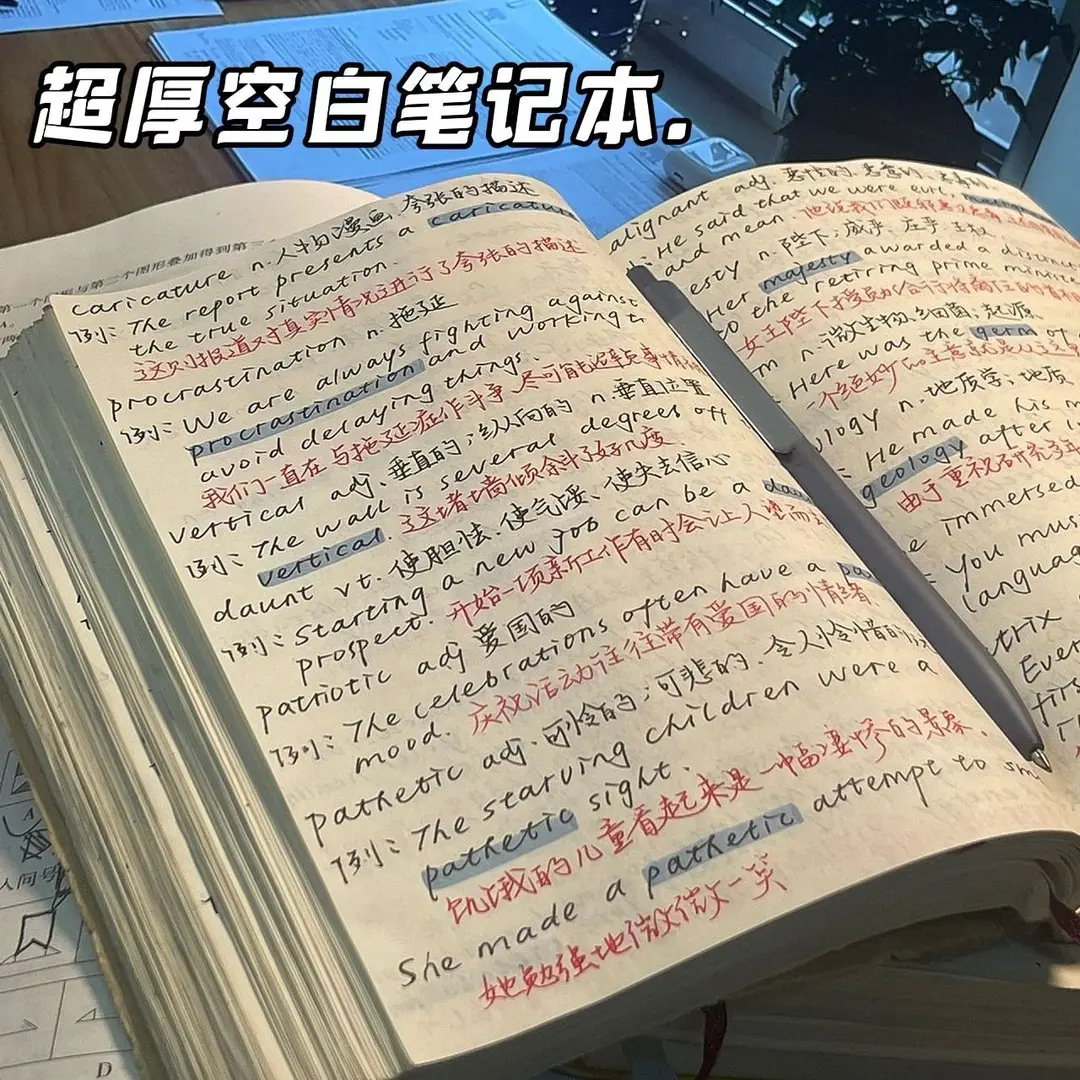 超厚空白笔记本.
第一个图形与第二个图形叠加得到第三
caricature n.人物漫画,夸张的描述
例: The report presents a caricature
the true situation.
这则报道对真实情况进行了夸张的描述
procrastination n.拖延
例: We are always fighting against
procrastination and working to
avoid delaying things.
我们一直在与拖延症作斗争 尽可能避免事情
vertical adj.垂直的;纵向的 n.垂直位置
例: The wall is several degrees off
vertical. 这堵墙倾斜了好几度.
daunt vt.使胆怯.使气馁、使失去信心
例: Starting a new job can be a
prospect. 开始一项新工作有时会让人望而
patriotic adj 爱国的
例: The celebrations often have a
mood. 庆祝活动往往带有爱国的情绪.
pathetic adj.可怜的;可悲的.令人怜惜的
例: The starving children were a
pathetic sight.
饥饿的儿童看起来是一幅凄惨的景象.
She made a pathetic attempt to
她勉强地微微一笑
alignant adj.恶性的.恶意的.
: He said that we were evil,
and mean
esty n.陛下;威严.庄严.王权
Her majesty awarded a distinct
to the retiring prime minist
m n.微生物.细菌;起源
Here was the germ of
一个绝妙的主意就是从这
ology n.地质学;地质
: He made his m
geology after
由于重视研究
immersed
You mus
languag
trix
Ever
firs
A
D